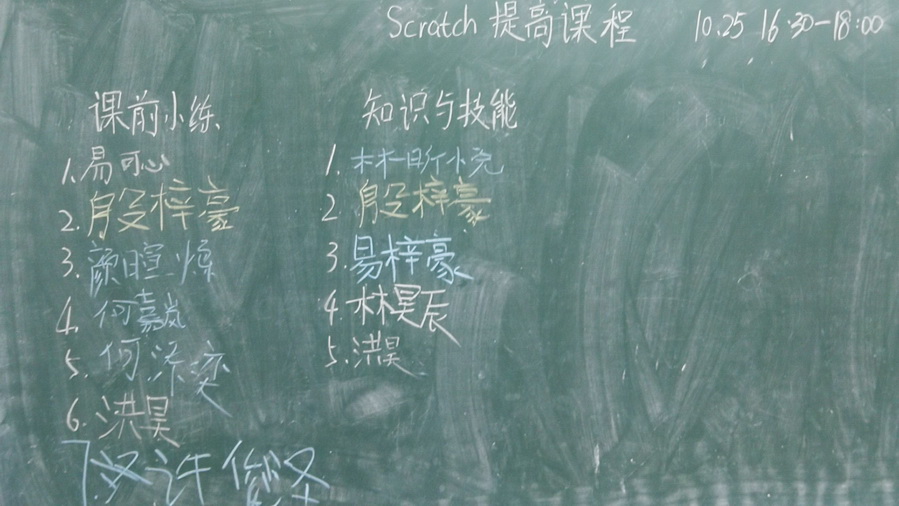 Scratch 提高课程 10.25 16:30-18:00
课前小练
1.易可心
2.殷梓豪
3.颜暄
4.何嘉岚
5.何
6.洪昊
7.许俊圣
知识与技能
1.林
2.殷梓豪
3.易梓豪
4.林昊辰
5.洪昊